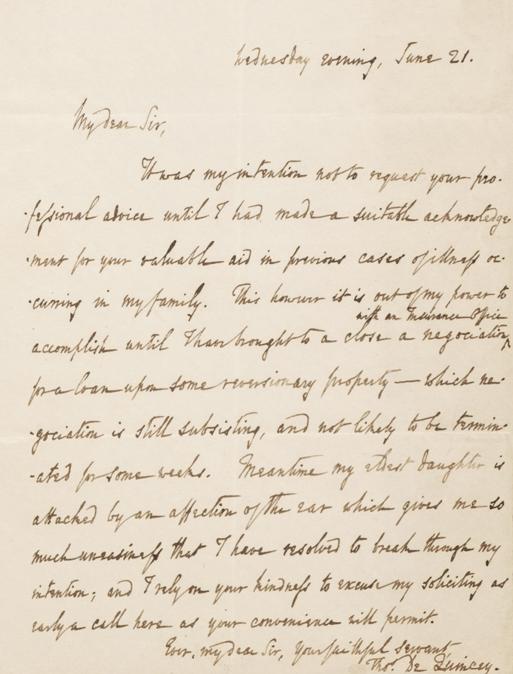 Wednesday evening, June 21.
My dear Sir,
It was my intention not to request your pro-
-fessional advice until I had made a suitable acknowledge-
-ment for your valuable aid in previous cases of illness oc-
-curing in my family. This however it is out of my power to
with an Insurance Office
accomplish until I have brought to a close a negociation
for a loan upon some reversionary property — which ne-
-gociation is still subsisting, and not likely to be termin-
-ated for some weeks. Meantime my eldest daughter is
attacked by an affection of the ear which gives me so
much uneasiness that I have resolved to break through my
intention; and I rely on your kindness to excuse my soliciting as
early a call here as your convenience will permit.
Ever, my dear Sir, your faithful servant,
Thos. De Quincey.